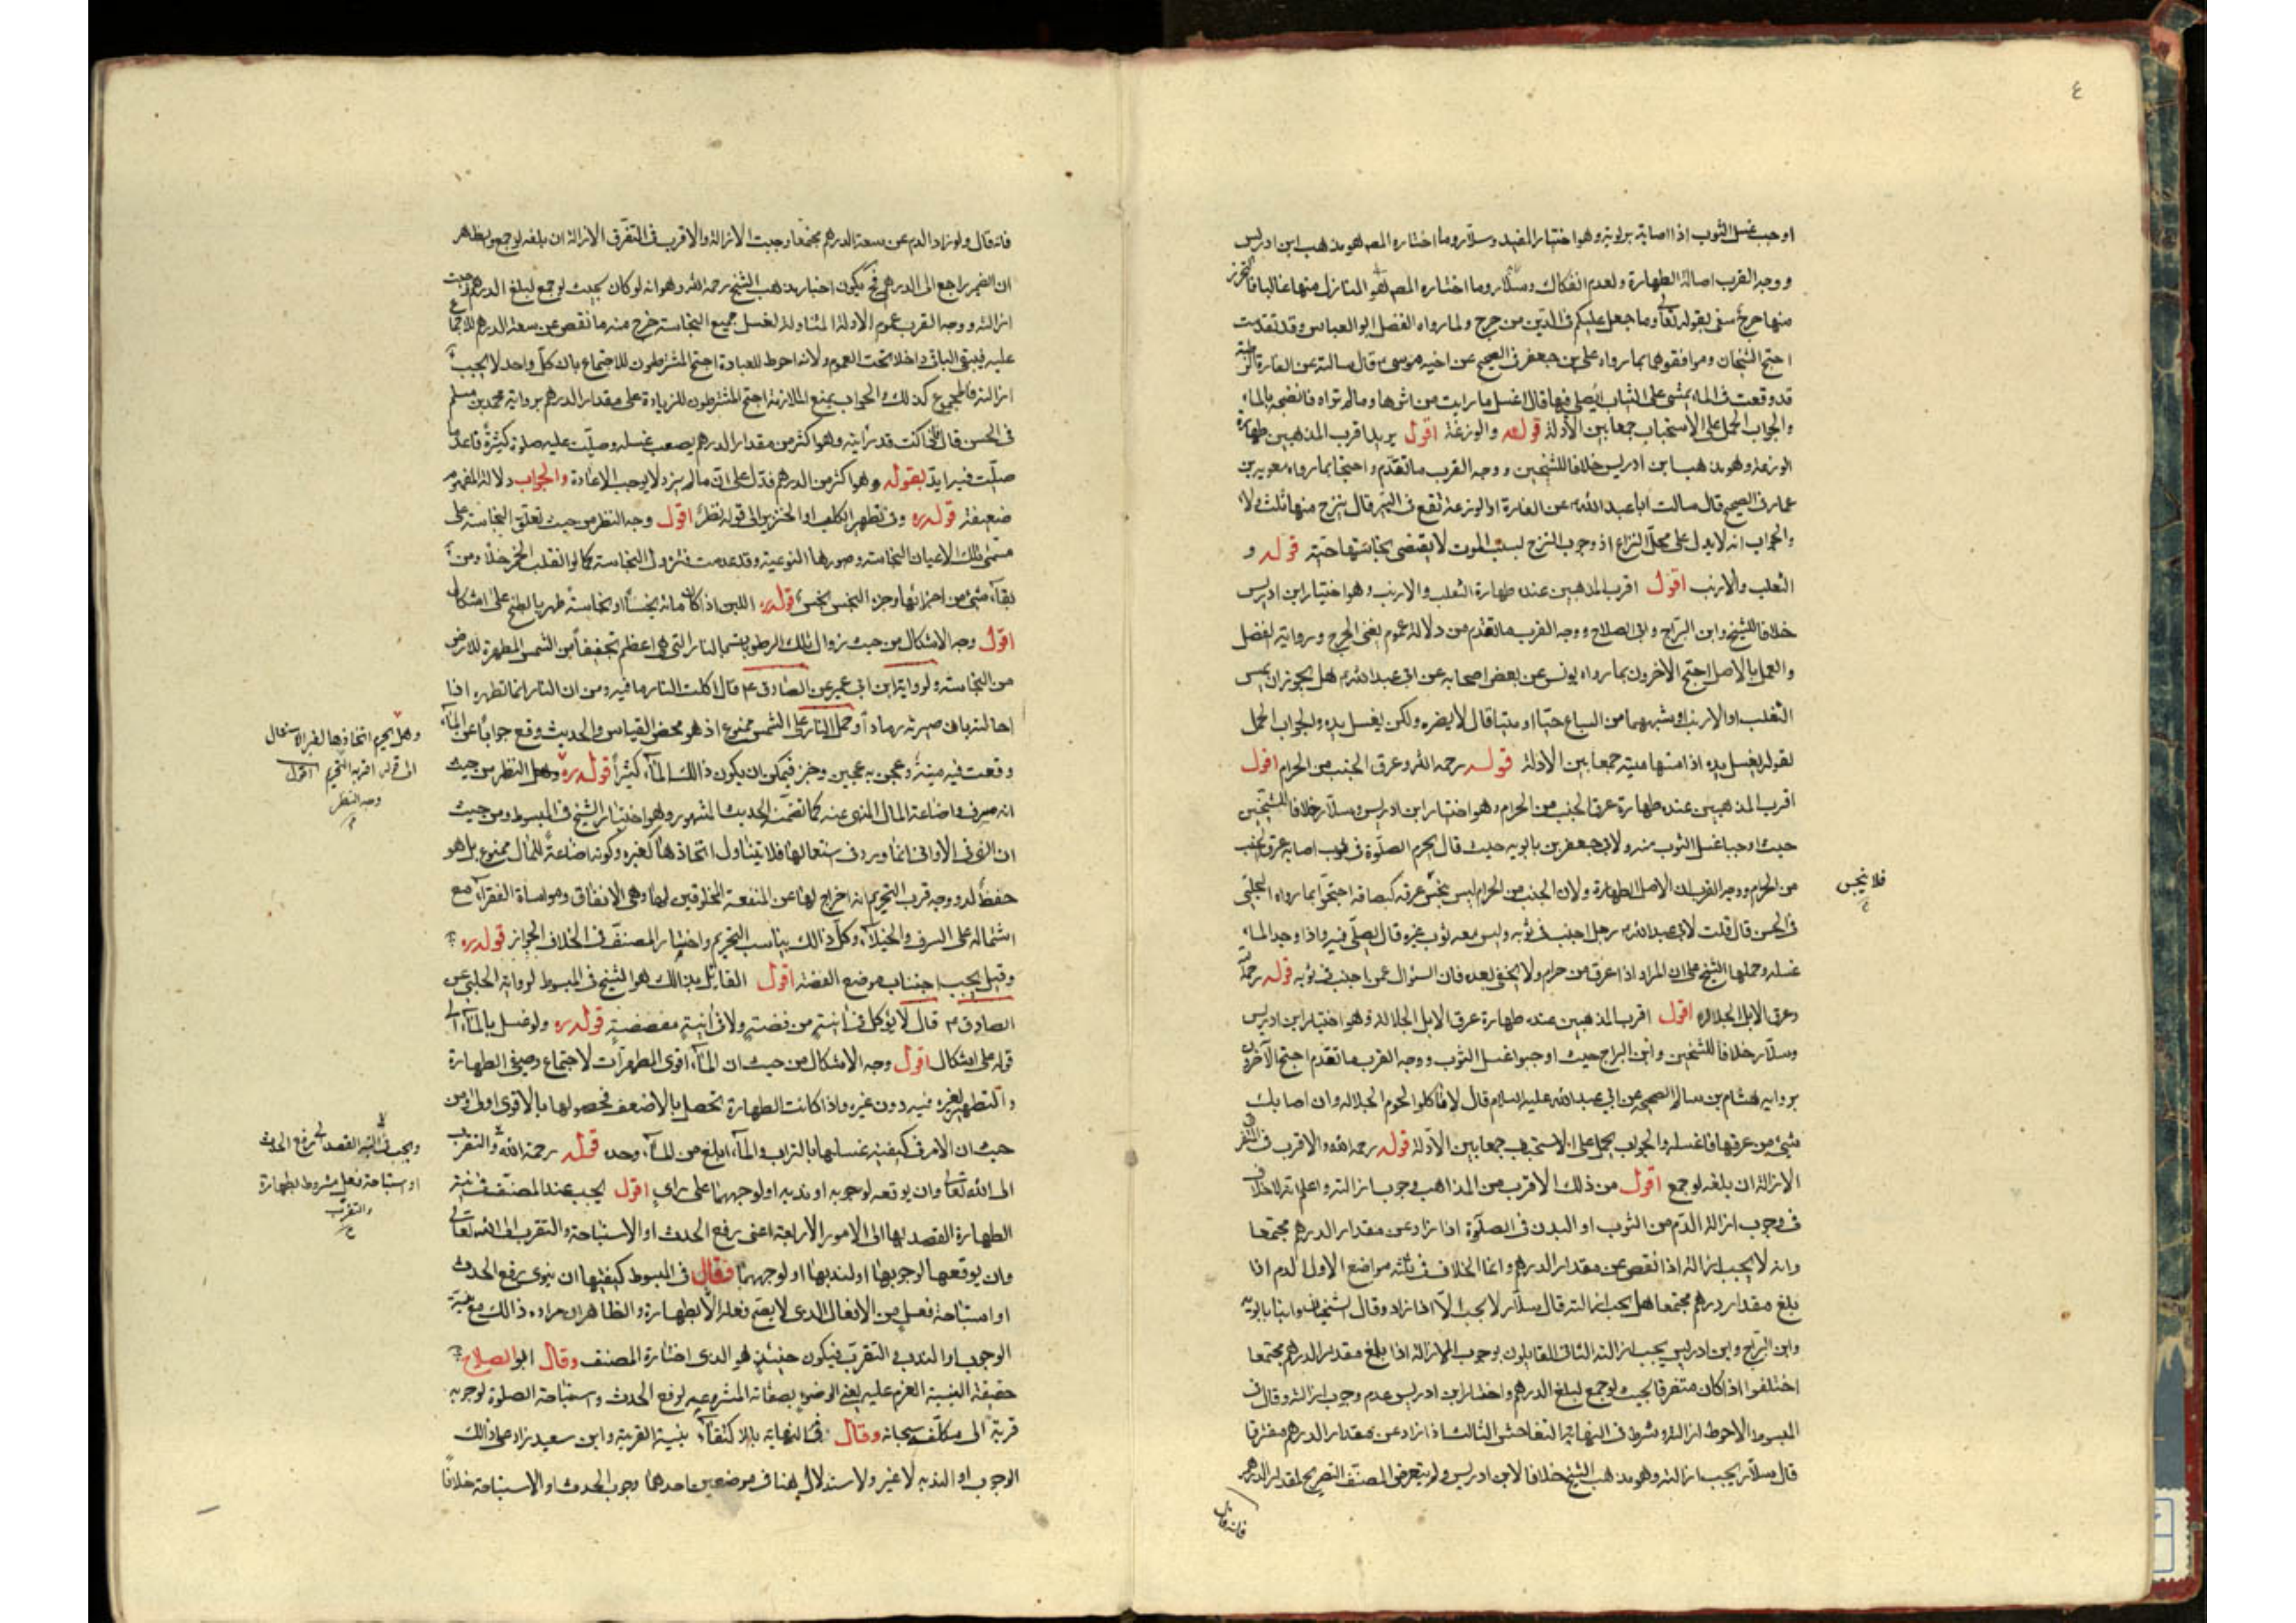 ٤
اوجب غسل الثوب اذا اصابته برطوبة وهو اختيار المفيد وسلار وما اختاره المص هو مذهب ابن ادريس
ووجه القرب اصالة الطهارة ولعدم انفكاك المنازل منها غالبا فالتحرز
منها حرج منفى بقوله تعالى وما جعل عليكم فى الدين من حرج ولما رواه الفضل ابو العباس وقد تقدمت
احتج الشيخان وموافقوهما بما رواه على بن جعفر فى الصحيح عن اخيه موسى ع قال سالته عن الفارة الرطبة
قد وقعت فى الماء تمشى على الثياب ايصلى فيها قال اغسل ما رايت من اثرها وما لم تراه فانضحه بالماء
والجواب الحمل على الاستحباب جمعا بين الأدلة قوله والوزغة اقول يريد اقرب المذهبين طهارة
الوزغة وهو مذهب ابن ادريس خلافا للشيخين ووجه القرب ما تقدم واحتجا بما رواه معوية بن
عمار فى الصحيح قال سالت ابا عبد الله ع عن الفارة او الوزغة تقع فى البئر قال ينزح منها ثلث دلاء
والجواب انه لا يدل على محل النزاع اذ وجوب النزح لسبب الموت لا يقتضى نجاستها حية قوله و
الثعلب والارنب اقول اقرب المذهبين عنده طهارة الثعلب والارنب وهو اختيار ابن ادريس
خلافا للشيخ وابن البراج وابى الصلاح ووجه القرب ما تقدم من دلالة عموم نفى الحرج ورواية الفضل
والعمل بالاصل احتج الاخرون بما رواه يونس عن بعض اصحابه عن ابى عبد الله ع هل يجوز ان يمس
الثعلب او الارنب او شيئا من السباع حيا او ميتا قال لا يضره ولكن يغسل يده والجواب الحمل
لقوله يغسل يده اذا مسها ميتة جمعا بين الادلة قوله رحمه الله وعرق الجنب من الحرام اقول
اقرب المذهبين عنده طهارة عرق الجنب من الحرام وهو اختيار ابن ادريس وسلار خلافا للشيخين
حيث اوجبا غسل الثوب منه ولابى جعفر بن بابويه حيث قال يحرم الصلوة فى ثوب اصابه عرق الجنب
من الحرام ووجه القرب ان الاصل الطهارة ولان الجنب من الحرام ليس بنجس عرقه كبصاقه احتجوا بما رواه الحلبى
فلا ينجس
فى الحسن قال قلت لابى عبد الله ع رجل اجنب فى ثوبه وليس معه ثوب غيره قال يصلى فيه واذا وجد الماء
غسله وحملها الشيخ على ان المراد اذا عرق من حرام ولا يخفى بعده فان السؤال عمن اجنب فى ثوبه قوله رحمه الله
وعرق الابل الجلالة اقول اقرب المذهبين عنده طهارة عرق الابل الجلالة وهو اختيار ابن ادريس
وسلار خلافا للشيخين وابن البراج حيث اوجبوا غسل الثوب ووجه القرب ما تقدم احتج الآخرون
برواية هشام بن سالم الصحيحة عن ابي عبد الله عليه السلام قال لا تاكلوا لحوم الجلالة وان اصابك
شيئ من عرقها فاغسله والجواب يحمل على الاستحباب جمعا بين الأدلة قوله رحمه الله والاقرب فى المتفرق
الازالة ان بلغه لو جمع اقول من ذلك الاقرب من المذاهب وجوب ازالته واعلم انه لا خلاف
فى وجوب ازالة الدم من الثوب او البدن فى الصلوة اذا زاد عن مقدار الدرهم مجتمعا
وانه لا يجب ازالته اذا نقص عن مقدار الدرهم وانما الخلاف فى ثلثة مواضع الاول الدم اذا
بلغ مقدار درهم مجتمعا هل يجب ازالته قال سلار لا يجب الا اذا زاد وقال الشيخان وابنا بابويه
وابن البراج وابن ادريس يجب ازالته الثانى القايلون بوجوب الازالة اذا بلغ مقدار الدرهم مجتمعا
اختلفوا اذا كان متفرقا بحيث لو جمع لبلغ الدرهم واختار ابن ادريس عدم وجوب ازالته وقال فى
المبسوط الاحوط ازالته وشرط فى النهاية التفاحش الثالث اذا زاد عن مقدار الدرهم متفرقا
قال سلار يجب ازالته وهو مذهب الشيخ خلافا لابن ادريس ولم يتعرض المصنف التصريح لمقدار الدرهم
فانه قال
فانه قال ولو زاد الدم عن سعة الدرهم مجتمعا وجبت الازالة والاقرب فى المتفرق الازالة ان بلغه لو جمع ويظهر
ان الضمير راجع الى الدرهم فح يكون اختيار مذهب الشيخ رحمه الله وهو انه لو كان بحيث لو جمع لبلغ الدرهم وجبت
ازالته ووجه القرب عموم الادلة المتناولة لغسل جميع النجاسة خرج منه ما نقص عن سعة الدرهم للاجماع
عليه فيبقى الباقى داخلا تحت العموم ولانه احوط للعبادة احتج المشترطون للاجتماع بان كل واحد لا يجب
ازالته فالمجموع كذلك والجواب بمنع الملازمة احتج المشترطون للزيادة على مقدار الدرهم برواية محمد بن مسلم
فى الحسن قال اذا كنت قد رأيته وهو اكثر من مقدار الدرهم فضيعت غسله وصليت عليه صلوة كثيرة فاعد ما
صليت فيه ايد بقوله وهو اكثر من الدرهم فدل على ان ما لم يزد لا يوجب الاعادة والجواب دلالة المفهوم
ضعيفة قوله ره وفى تطهر الكلب او الخنزير الى قوله نظر اقول وجه النظر من حيث تعلق النجاسة على
مسمى تلك الاعيان النجاسة وصورها النوعية وقد عدمت فتزول النجاسة كما لو انقلب الخمر خلا ومن
بقاء شئ من اجزائها وجزء النجس نجس قوله ره اللبن اذا كان ماؤه نجسا او نجاسة طهر بالطبخ على اشكال
اقول وجه الاشكال من حيث زوال تلك الرطوبة بسبب النار التى هى اعظم تجفيفا من الشمس المطهرة للارض
من النجاسة ولرواية ابن ابى عمير عن الصادق ع قال اكلت النار ما فيه ومن ان النار انما تطهره اذا
احالته بان صيرته رمادا وحمل النار على الشمس ممنوع اذ هو محض القياس والحديث وقع جوابا عن الماء
وقعت فيه ميتة وعجن به عجين وخبز فيمكن ان يكون ذالك الماء كثيرا قوله ره وهل النظر من حيث
وهل يحرم اتخاذها لغير الاستعمال
الى قوله اقربه التحريم اقول
وجه النظر
انه سرف واضاعة المال المنهى عنه كما تضمنه الحديث المشهور وهو اختيار الشيخ فى المبسوط ومن حيث
ان النهى فى الاوانى انما ورد فى استعمالها فلا يتناول اتخاذها كغيره وكونه اضاعة للمال ممنوع بل هو
حفظ له ووجه قرب التحريم انه اخراج لها عن المنفعة المخلوقين لها وهى الانفاق ومواساة الفقراء مع
اشتماله على السرف والخيلاء وكل ذالك يناسب التحريم واختيار المصنف فى الخلاف الجواز قوله ره
وقيل يجب اجتناب موضع الفضة اقول القائل بذالك هو الشيخ فى المبسوط لرواية الحلبى عن
الصادق ع قال لا يؤكل فى انية من فضة ولا فى انية مفضضة قوله ره ولو غسل بالماء الى
قوله على اشكال اقول وجه الاشكال من حيث ان الماء اقوى المطهرات لاجتماع وصفى الطهارة
والتطهير لغيره فيه دون غيره واذا كانت الطهارة تحصل بالاضعف فحصولها بالاقوى اولى ومن
حيث ان الامر فى كيفية غسلها بالتراب والماء ابلغ من الماء وحده قوله رحمه الله والتقرب
ويجب فى النية القصد الى رفع الحدث
او استباحة فعل مشروط بطهارة
والتقرب
الى الله تعالى وان يوقعه لوجوبه او ندبه او لوجههما على راى اقول يجب عند المصنف فى نية
الطهارة القصد بها الى الامور الأربعة اعنى رفع الحدث او الاستباحة والتقرب الى الله تعالى
وان يوقعها لوجوبها او لندبها او لوجههما فقال فى المبسوط كيفيتها ان ينوى رفع الحدث
او استباحة فعل من الافعال الذى لا يصح فعله الا بطهارة والظاهر ان مراده ذالك مع نية
الوجوب او الندب والتقرب فيكون حينئذ هو الذى اختاره المصنف وقال ابو الصلاح
حقيقة النية العزم عليه يعنى الوضوء بصفاته المشروعية لرفع الحدث واستباحة الصلوة لوجوبه
قربة الى مكلفه سبحانه وقال فى النهاية بالاكتفاء بنية القربة وابن سعيد زاد على ذالك
الوجوب او الندب لا غير والاستدلال هنا فى موضعين احدهما وجوب الحدث او الاستباحة خلافا